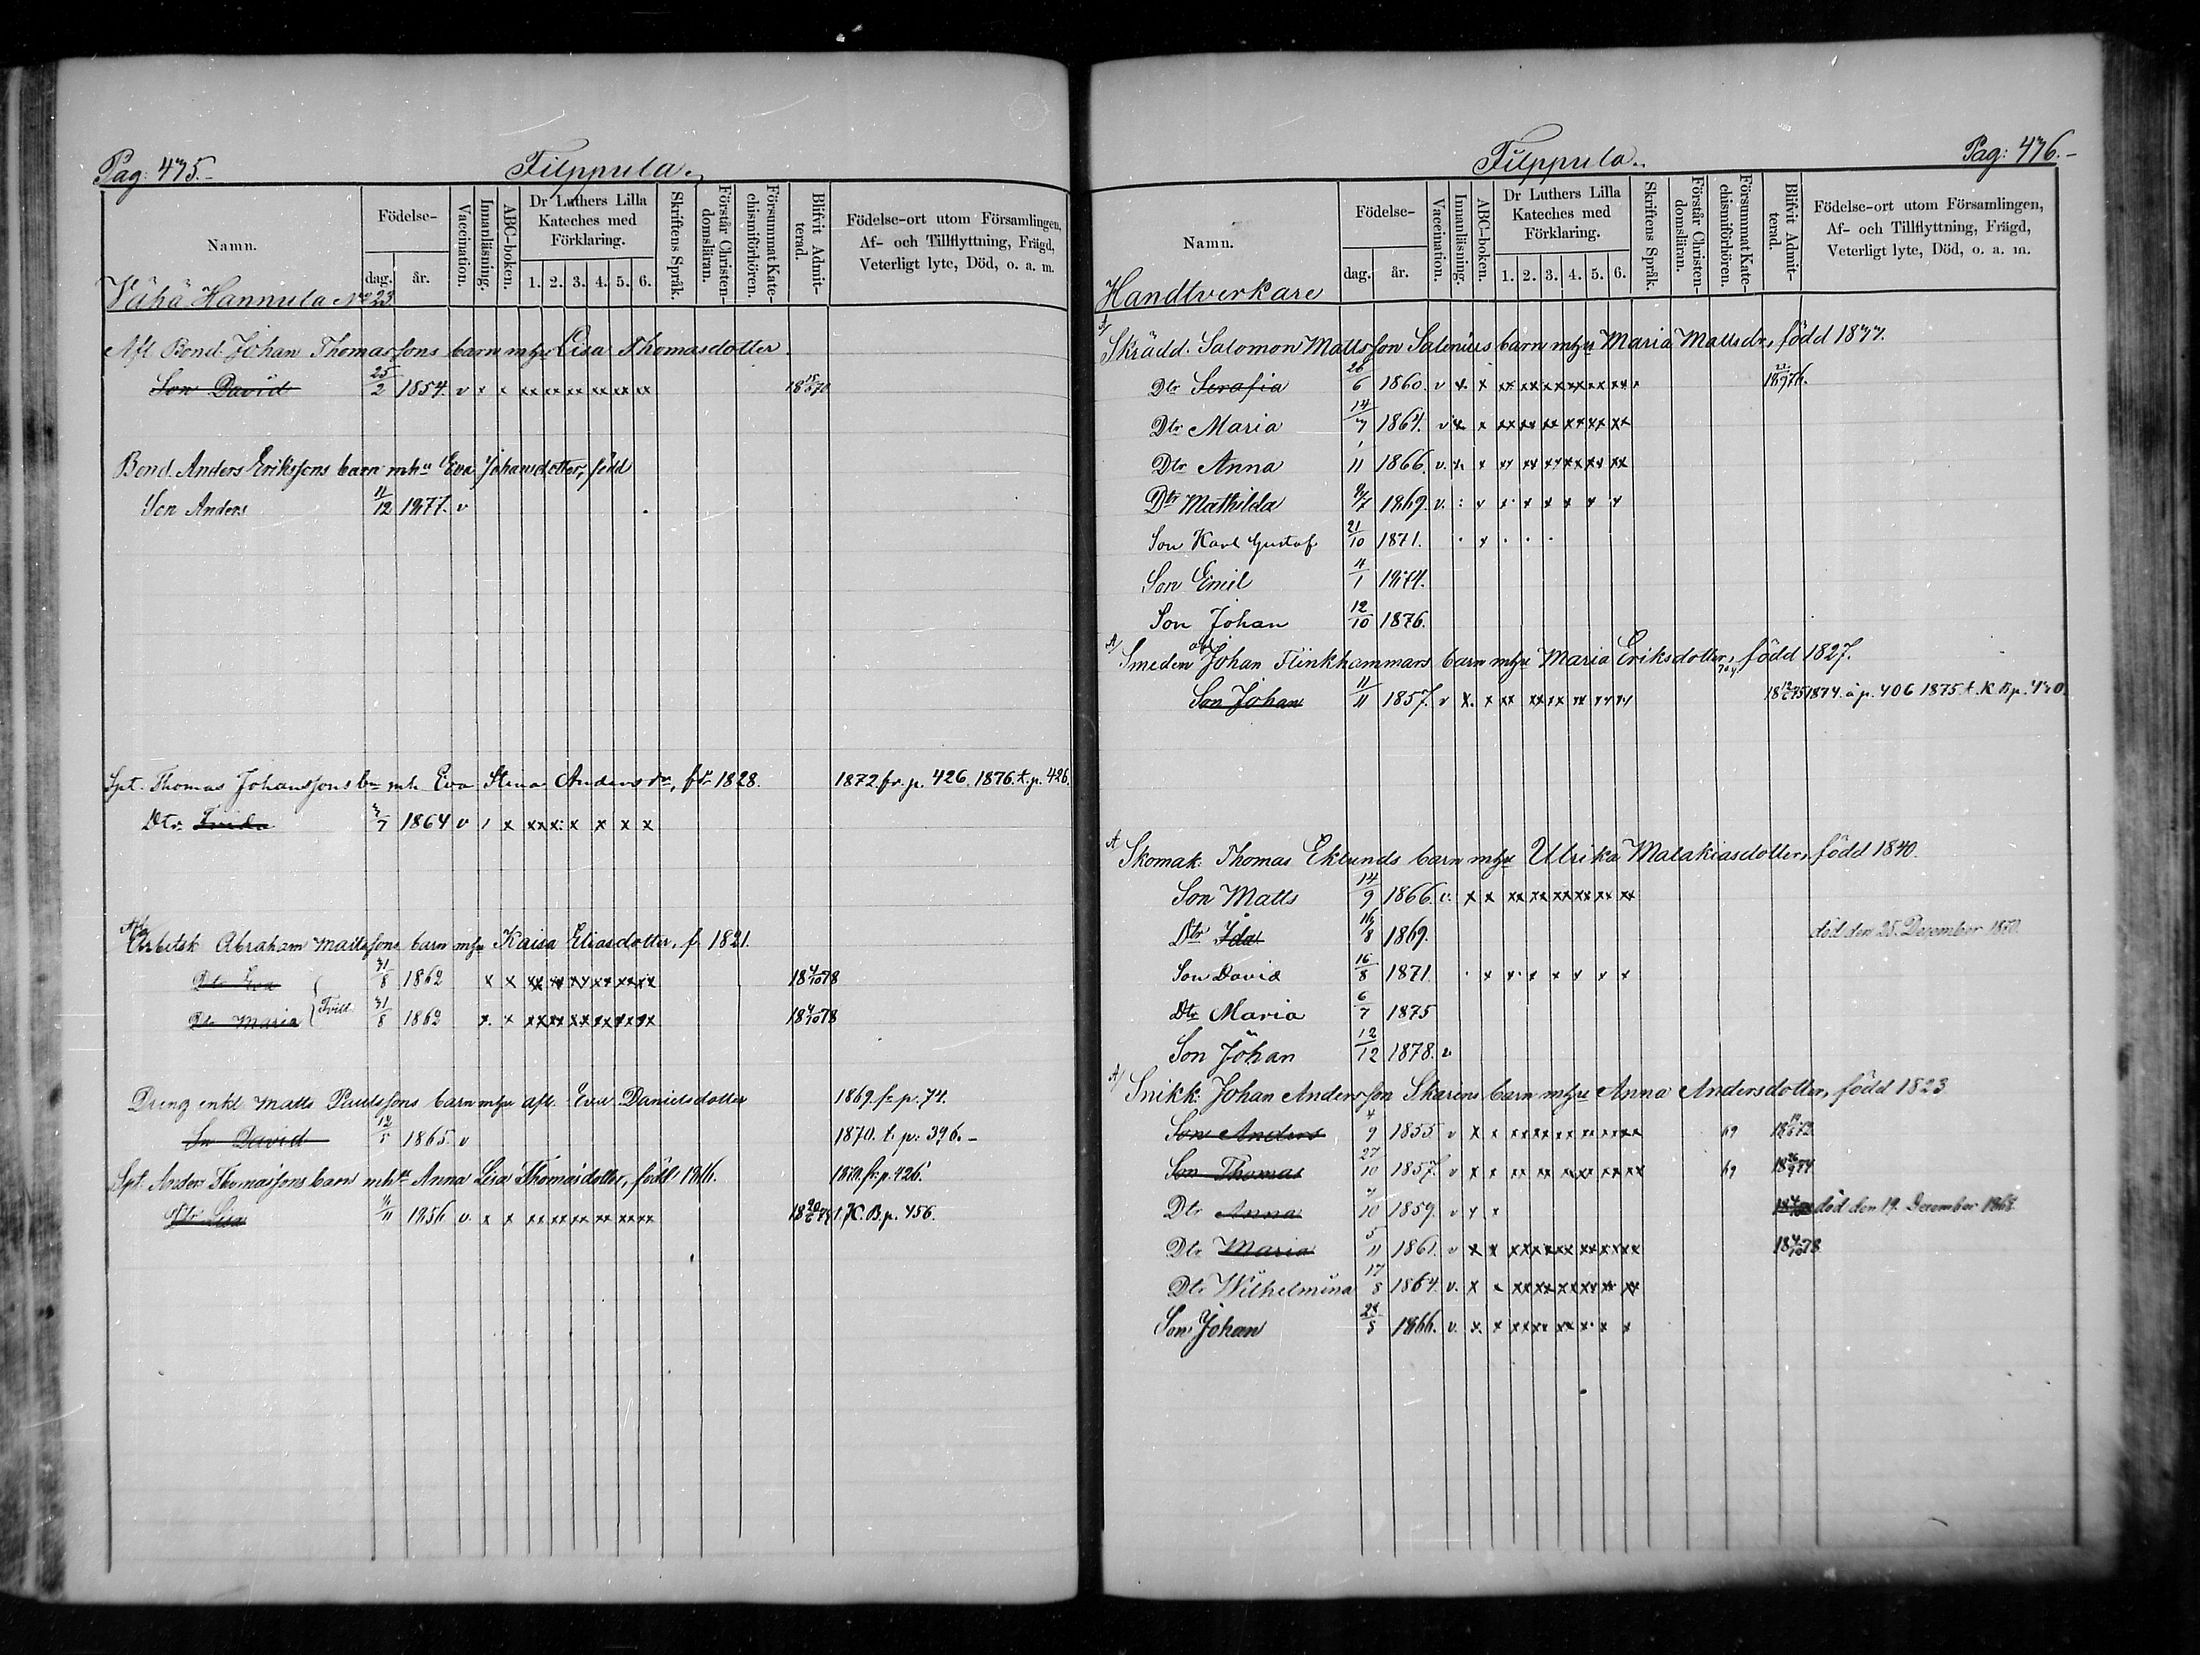 Pag: 475.
Filppula.
Namn.
Födelse-
dag.
år.
Vaccination.
Innanläsning.
ABC-boken.
Dr Luthers Lilla
Kateches med
Förklaring.
1. 2. 3. 4. 5. 6.
Skriftens Språk.
Förstår Christen-
domsläran.
Försummat Kate-
chismiförhören.
Blifvit Admit-
terad.
Födelse-ort utom Församlingen,
Af- och Tillflyttning, Frägd,
Veterligt lyte, Död, o. a. m.
Vähä Hannula No 23
Afl Bond. Johan Thomassons barn mhu Lisa Thomasdotter.
Son David 25/2 1854. v x x xx xx xx xx xx xx
Bond Anders Erikssons barn mhu Eva Johansdotter, född
Son Anders 11/12 1877. v
Spt. Thomas Johanssons bn mh Eva Stina Andersdr, fr 1828. 1872 fr. p. 426. 1876. t. p. 426.
Dtr 1864 v x
Arbetsk Abraham Mattssons barn mhu Kaisa Eliasdotter, f. 1821.
Dtr Eva 31/8 1862 x x xx xx xx xx xx xx 18 4/10 78
Dtr Maria Tvill. 31/8 1862 x. x xx xx xx xx xx xx 18 4/10 78
Dreng enkl Matts Paulssons barn mhu afl. Eva Danielsdotter 1869. fr p. 74.
Sn David 12/5 1865. v 1870. t. p. 396.
Spt. Anders Thomassons barn mhu Anna Lisa Thomasdotter, född fr. p. 426.
Dtr Lisa 1856 v. x x xx xx xx xx xx xx K. B. p. 456.
Pag: 476.
Filppula.
Namn.
Födelse-
dag.
år.
Vaccination.
Innanläsning.
ABC-boken.
Dr Luthers Lilla
Kateches med
Förklaring.
1. 2. 3. 4. 5. 6.
Skriftens Språk.
Förstår Christen-
domsläran.
Försummat Kate-
chismiförhören.
Blifvit Admit-
terad.
Födelse-ort utom Församlingen,
Af- och Tillflyttning, Frägd,
Veterligt lyte, Död, o. a. m.
Handtverkare
Skrädd. Salomon Mattsson Salenius barn mhu Maria Mattsdr, född
Dtr Serafia 26/6 1860. v x. x xx xx xx xx xx xx
Dtr Maria 14/7 1864. v x. x xx xx xx xx xx xx
Dtr Anna 1/11 1866. v. x. x xx xx xx xx xx xx
Dtr Mathilda 1869. v. : x x x x x x x
Son Karl Gustaf 21/10 1871. . x . . .
Son Emil 1874.
Son Johan 12/10 1876.
Smeden Johan Flinkhammars barn mhu Maria Eriksdotter, född 1827.
Son Johan 11/11 1857. v x. x xx xx xx xx xx xx 1874. å p. 406 1875. t. K. B p.
Skomak. Thomas Eklunds barn mhu Ulrika Malakiasdotter, född 1840.
Son Matts 14/9 1866. v. x x xx xx xx xx xx xx
Dtr Ida 1869. död den 25. December 1870.
Son David 16/8 1871. . x x x x x x x
Dtr Maria 6/7 1875
Son Johan 12/12 1878. v
Snikk. Johan Andersson Skarens barn mhu Anna Andersdotter, född 1823
Son Anders 4/9 1855. v x x xx xx xx xx xx xx 69
Son Thomas 27/10 1857. v x x xx xx xx xx xx xx 69
Dtr Anna 1859. v x x död den 19. December 1868
Dtr Maria 5/11 1861. v x x xx xx xx xx xx xx 18 4/10 78
Dtr Wilhelmina 17/8 1864. v. x xx xx xx xx xx xx
Son Johan 1866. v. x. x xx xx xx x. x x